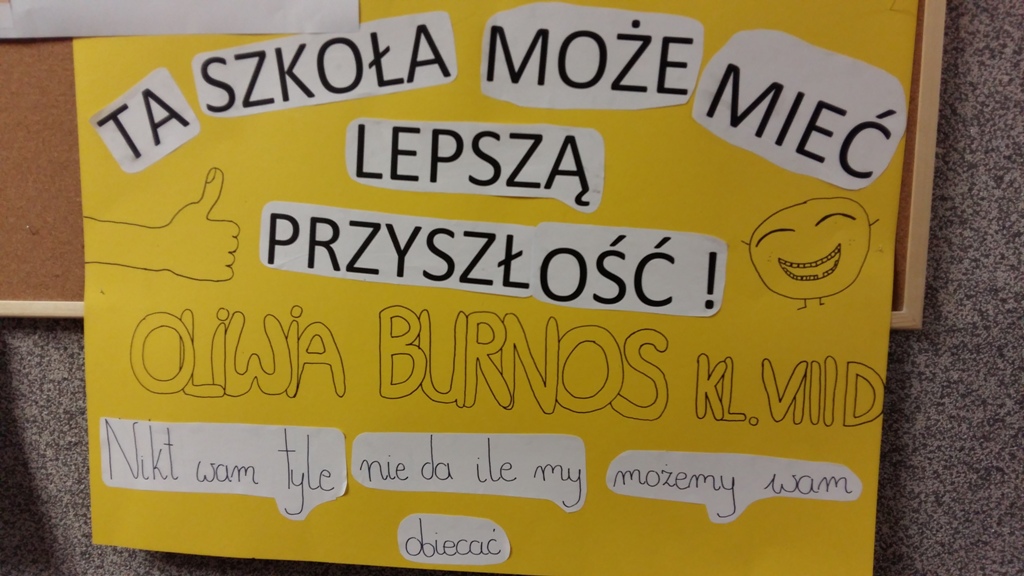 TA SZKOŁA MOŻE MIEĆ
LEPSZĄ
PRZYSZŁOŚĆ !
OLIWIA BURNOS KL. VIII D
Nikt wam tyle nie da ile my możemy wam
obiecać